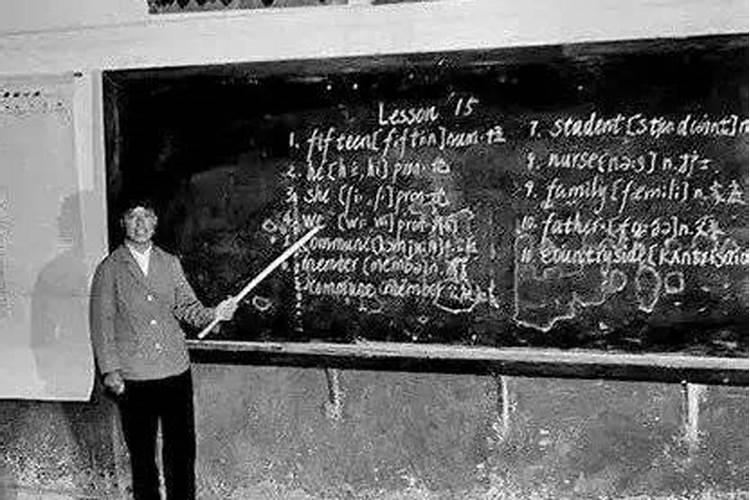 Lesson 15
1. fifteen [fiftin] num. 十五
2. he [hi:, hi] pron. 他
3. she [ʃi:, ʃi] pron. 她
4. we [wi:, wi] pron. 我们
5. commune [kɔmjun] n. 公社
6. member [membə] n.
commune member 社员
7. student [stjudənt] n
8. nurse [nə:s] n. 护士
9. family [fæmili] n. 家庭
10. father [fɑ:ðə] n. 父亲
11. countryside [kʌntrisaid